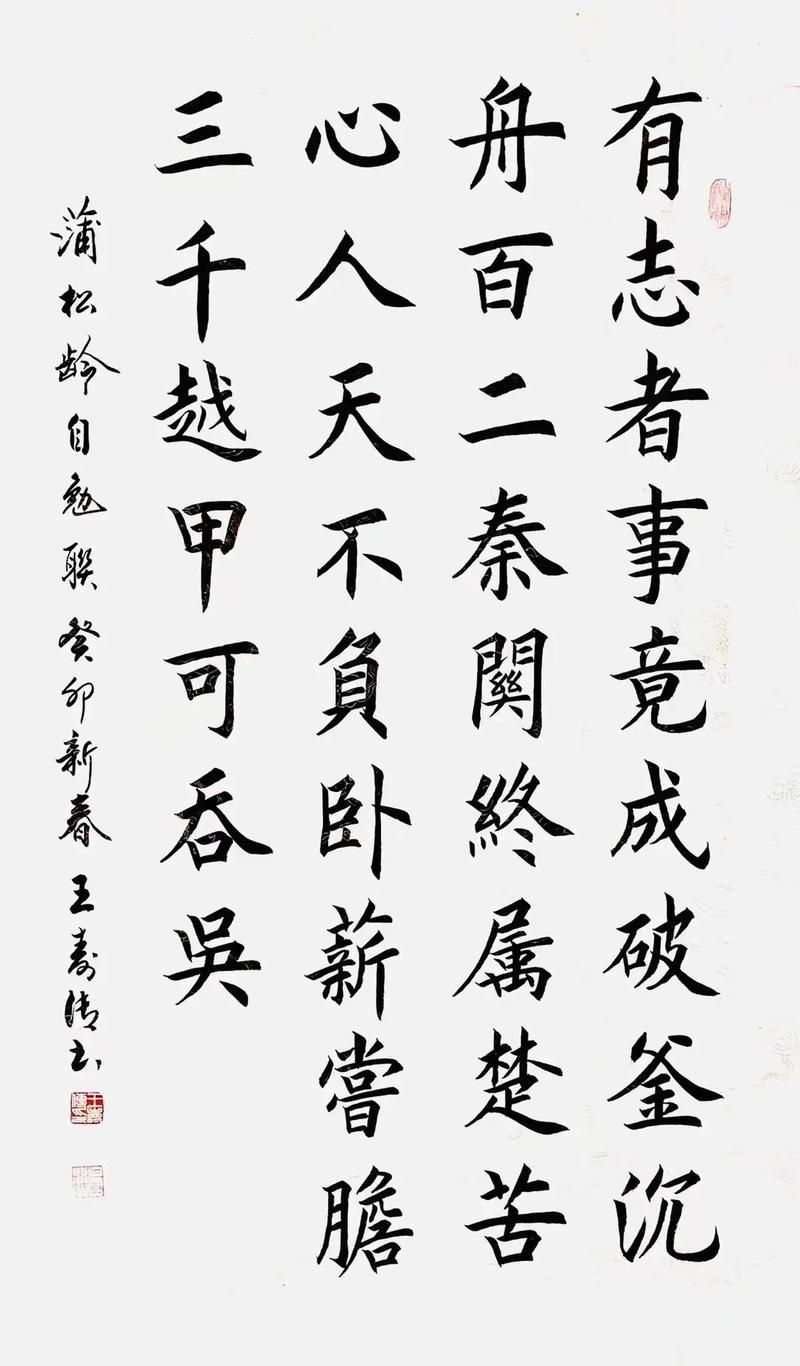 有志者事竟成破釜沉
舟百二秦關終属楚苦
心人天不負卧薪嘗膽
三千越甲可吞吳
蒲松龄自勉聯癸卯新春王壽清书